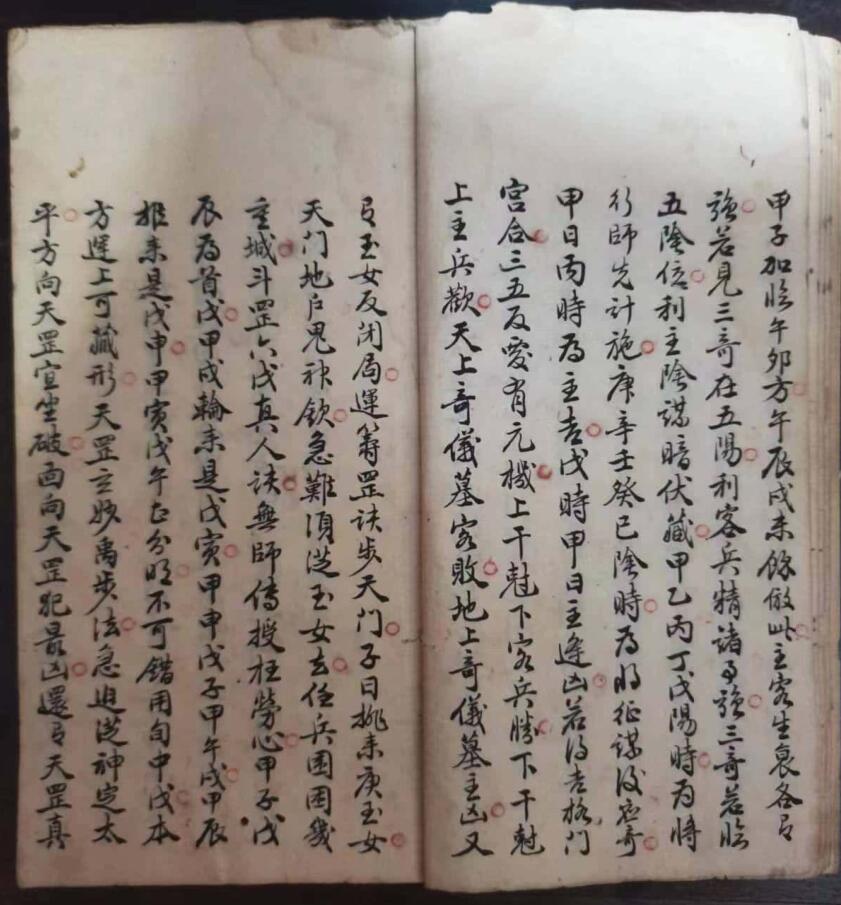 甲子加临午卯方午辰戌未餘倣此主客生衰各有
強若見三奇在五陽利客兵精諸事強三奇若临
五陰位利主陰謀暗伏藏甲乙丙丁戊陽時為將
行師先計施庚辛壬癸已陰時為 征謀後應奇
甲日丙時為主吉戊時甲日主逢凶若得吉格門
宮合三五反爱有元機上干尅下客兵勝下干尅
上主兵歡天上奇儀墓客敗地上奇儀墓主凶又
有玉女反闭局運籌罡诀步天门子日排来庚玉女
天门地户鬼神钦急難須從玉女去任兵围困幾
重城斗罡六戊真人诀無師傳授枉勞心甲子戊
辰為首戊甲戌輪来是戊寅甲申戊子甲午戊甲辰
推来是戊申甲寅戊午正分明不可錯用旬中戊本
方運上可藏形天罡玄妙禹步法急追從神定太
平方向天罡宜坐破面向天罡犯最凶還有天罡真